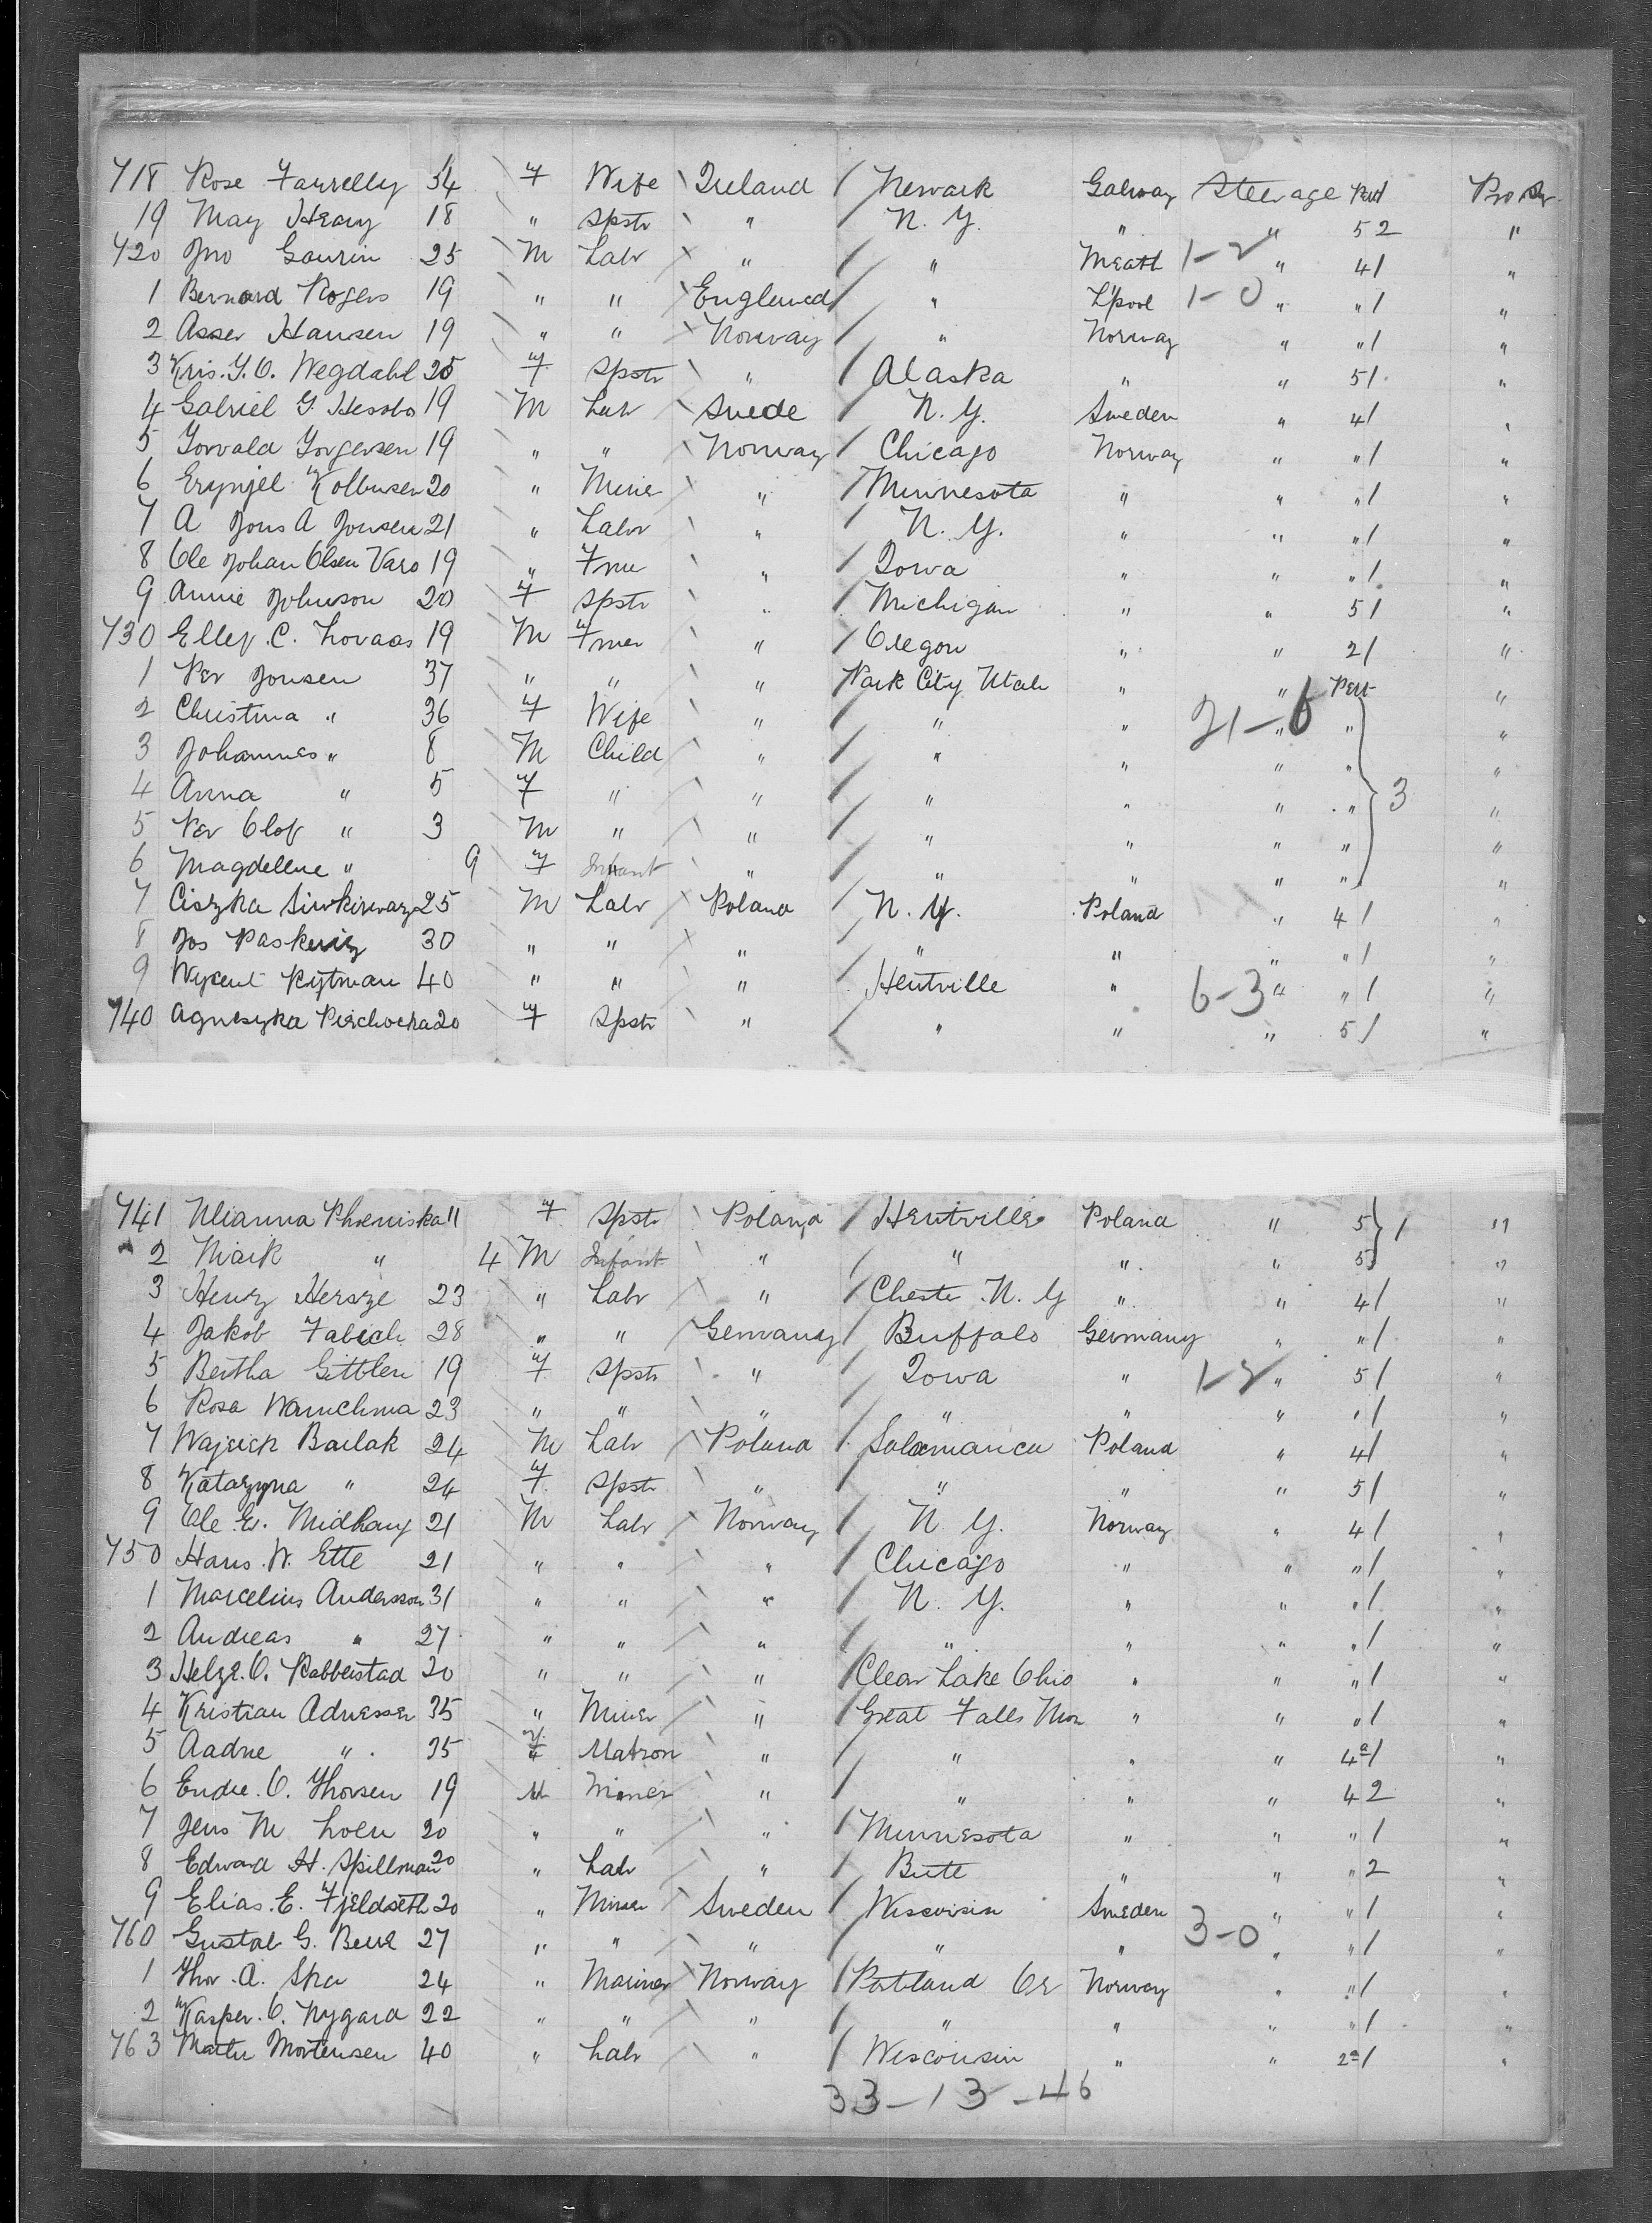 718 Rose Farrelly 34 F Wife Ireland / Newark Galway Steerage Port Pro Sr.
19 May Heavy 18 " Spstr " N. Y. " " 5 2 "
720 Jno Gaurin 25 M Labr " / " Meath 1-2 " 4 1 "
1 Bernard Rogers 19 " " England / " L'pool 1-0 " " 1 "
2 Asser Hansen 19 " " Norway / " Norway " " 1 "
3 Kris. G. O. Wegdahl 25 F Spstr " / Alaska " " 5 1 "
4 Gabriel G. Hessbo 19 M Labr Swede / N. Y. Sweden " 4 1 "
5 Torvald Torgersen 19 " " Norway / Chicago Norway " " 1 "
6 Erynjel Kolbusen 20 " Miner " / Minnesota " " " 1 "
7 A Jons A Jonsen 21 " Labr " / N. Y. " " " 1 "
8 Ole Johan Olsen Varo 19 " Fmr " / Iowa " " " 1 "
9 Annie Johnson 20 F Spstr " / Michigan " " 5 1 "
730 Ellef. C. Lovaas 19 M Fmer " / Oregon " " 2 1 "
1 Per Jonsen 37 " " " Park City Utah " " Port "
2 Christina " 36 F Wife " / " " 21-6 " " "
3 Johannes " 8 M Child " / " " " " "
4 Anna " 5 F " " / " " " " 3 "
5 Per Olof " 3 M " " / " " " " "
6 Magdellne " 9 F Infant " / " " " " "
7 Ciszka 25 M Labr Poland / N. Y. Poland " 4 1 "
8 Jos Paskewiz 30 " " " / " " " " 1 "
9 Wypent Rytman 40 " " " / Hentville " 6-3 " " 1 "
740 Agneszka Pierchocka 20 F Spstr " / " " " 5 1 "
741 Ulianna Phoeniska 11 F Spstr Poland / Hentville Poland " 5 } 1 "
2 Maik " 4 M Infant " / " " " 5 "
3 Henry Hersze 23 " Labr " / Cheste N. Y " " 4 1 "
4 Jakob Fabich 28 " " Germany / Buffalo Germany " " 1 "
5 Bertha Gittlen 19 F Spstr " / Iowa " 1-2 " 5 1 "
6 Rosa Wanuchma 23 " " " / " " " " 1 "
7 Wajciek Bailak 24 M Labr Poland / Salamanca Poland " 4 1 "
8 Katarzyna " 24 F Spstr " / " " " 5 1 "
9 Ole E. Midhaug 21 M Labr Norway / N. Y. Norway " 4 1 "
750 Hans. W. Ette 21 " " " / Chicago " " " 1 "
1 Marcelius Andersson 31 " " " / N. Y. " " " 1 "
2 Andreas " 27 " " " / " " " " 1 "
3 Helge. O. Rabbestad 20 " " " / Clear Lake Ohio " " " 1 "
4 Kristian Adnesser 35 " Miner " / Great Falls Mon " " " 1 "
5 Aadne " 35 F Matron " / " " " 4a 1 "
6 Endre. O. Thorsen 19 M Miner " / " " " 4 2 "
7 Jens M Loen 20 " " " / Minnesota " " " 1 "
8 Edward H. Spillman 20 " Labr " / Bute " " " 2 "
9 Elias. E. Fjeldseth 20 " Miner Sweden / Wisconsin Sweden " " 1 "
760 Gustab G. Beve 27 " " " / " " 3-0 " " 1 "
1 Thor. A. Ska 24 " Mariner Norway / Portland Or Norway " " 1 "
2 Kasper. O. Nygard 22 " " " / " " " " 1 "
763 Martu Mortensen 40 " Labr " / Wisconsin " " 2a 1 "
33-13-46